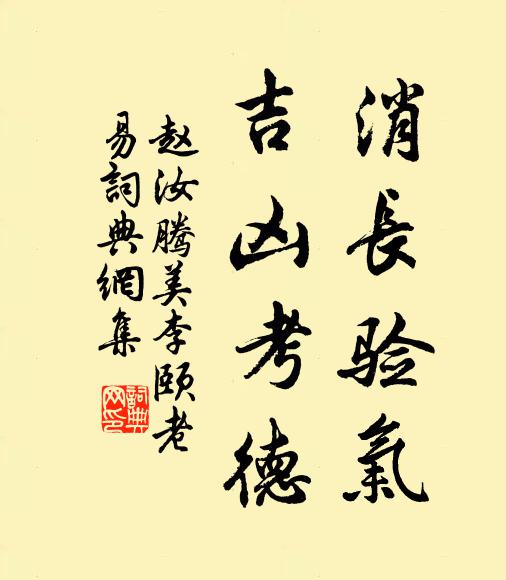 消長验氣
吉凶考德
赵汝腾美李颐老
易詞典網集
詞典
网印